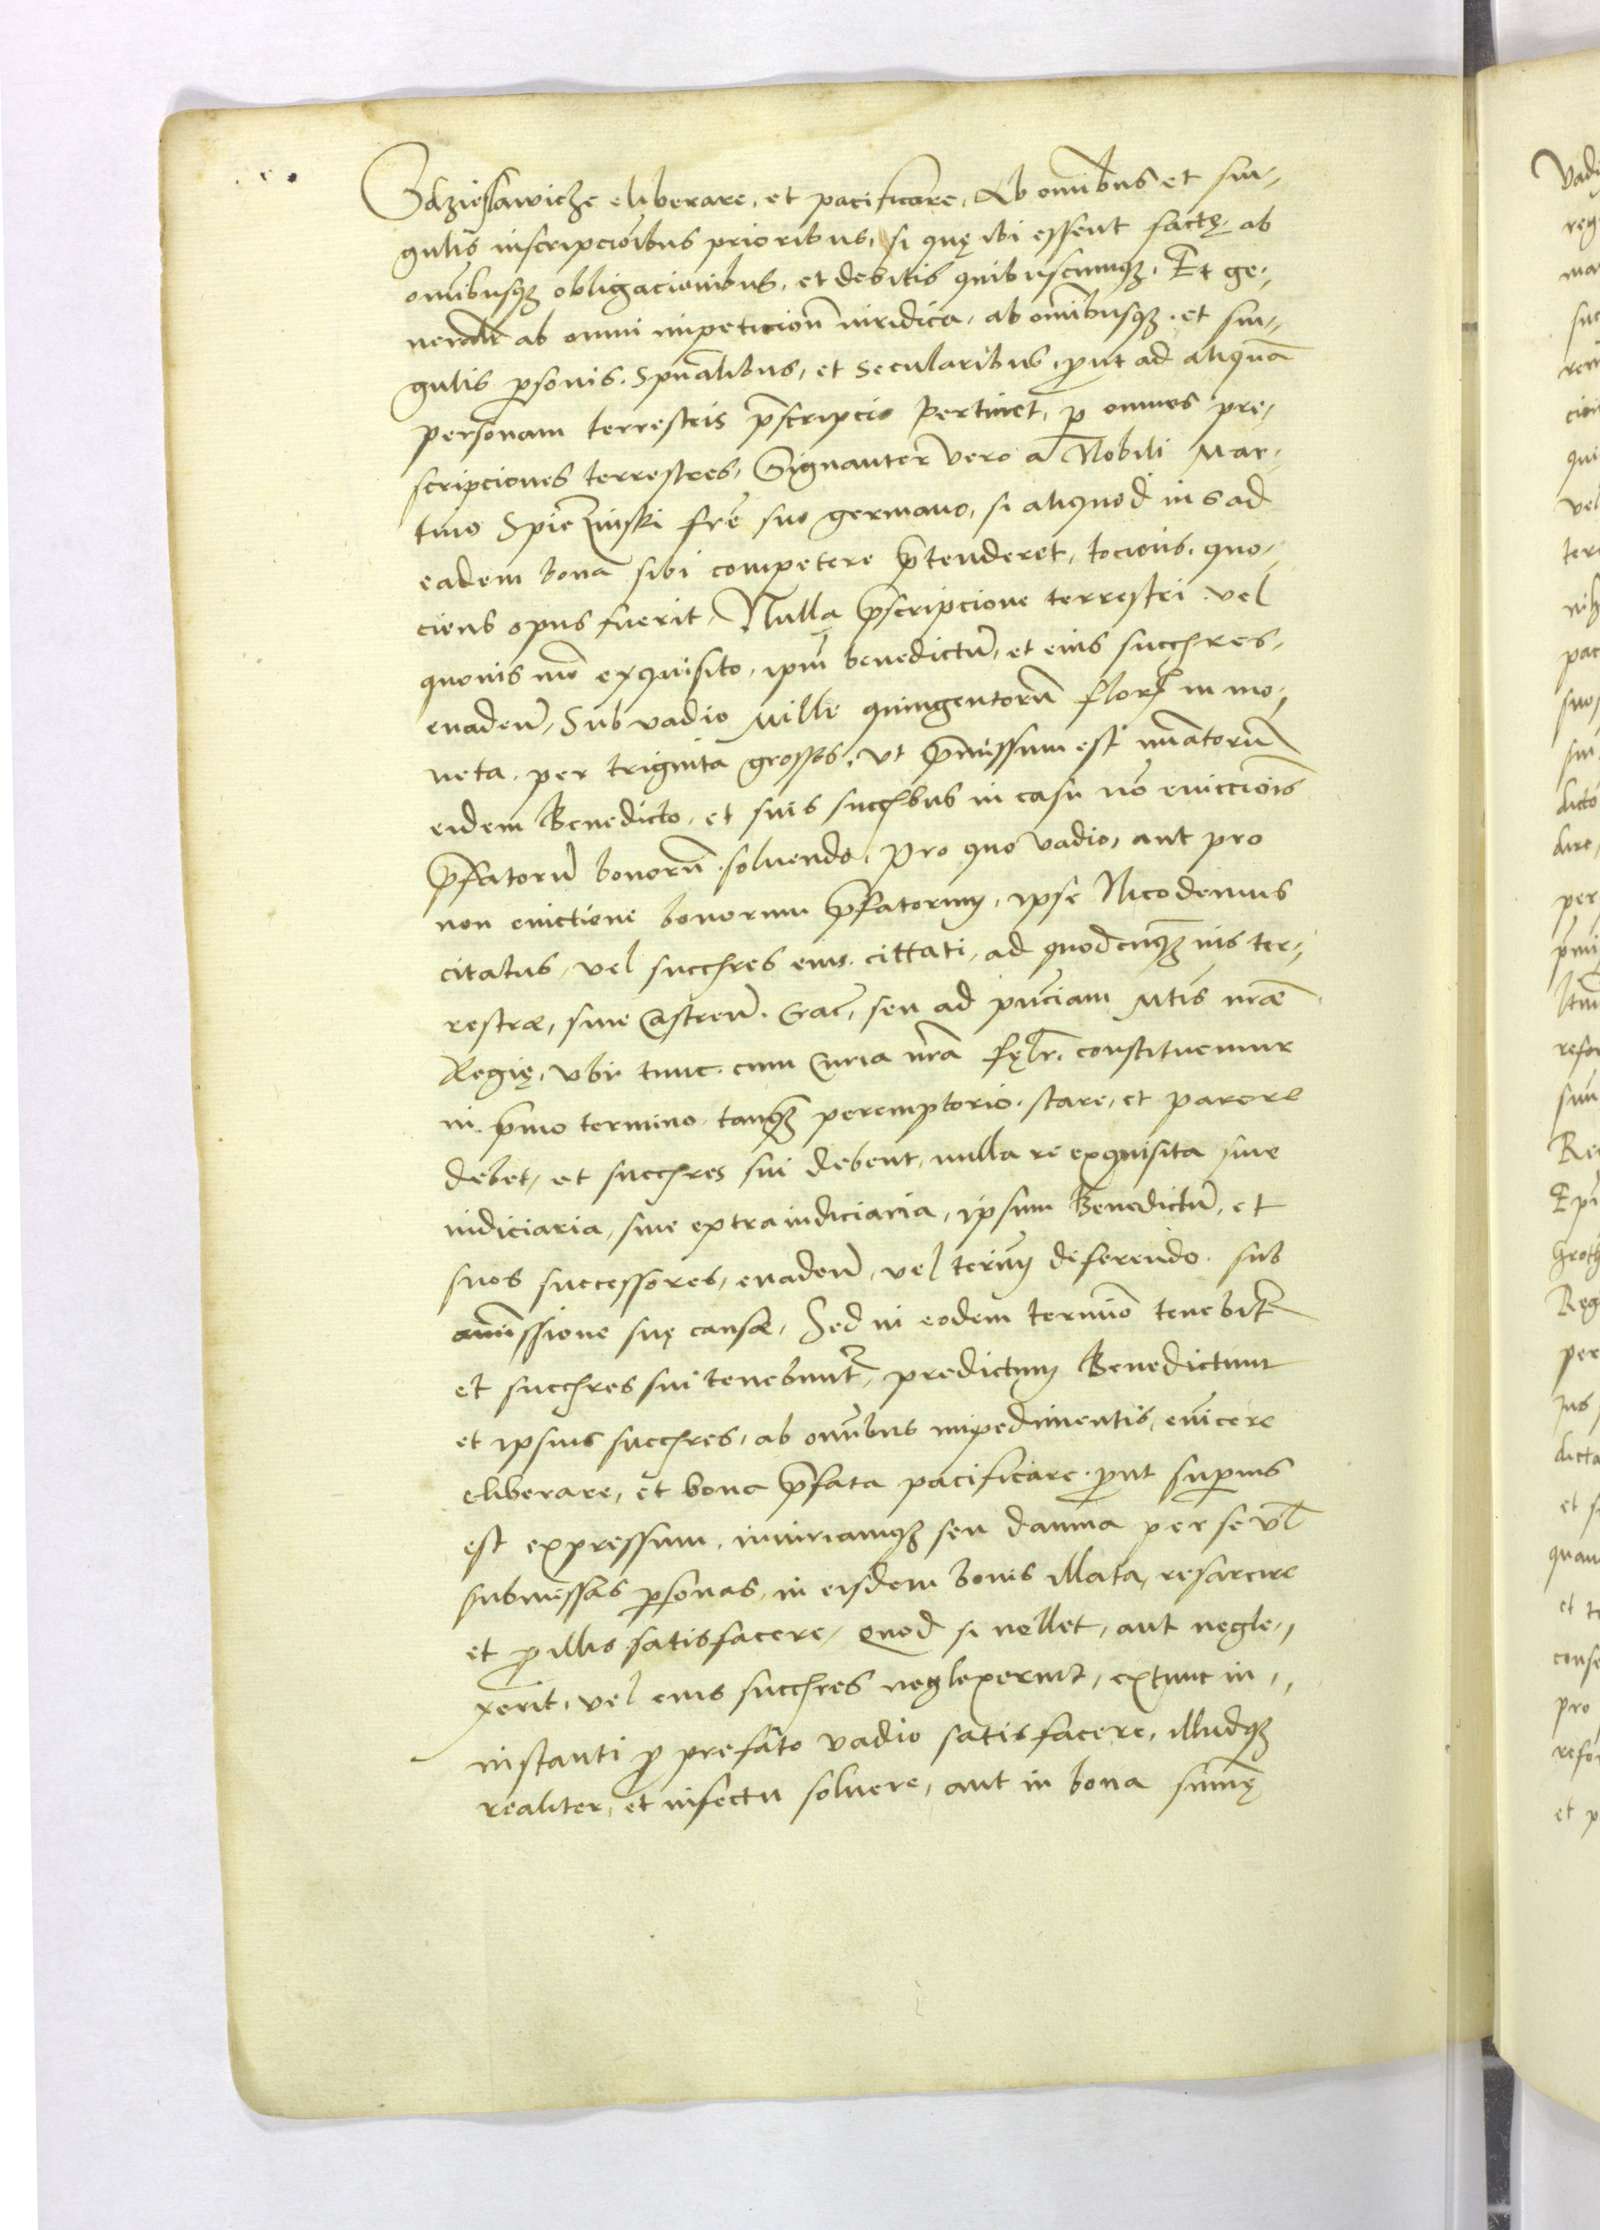 Gdzieslawicze eliberare, et pacificare, Ab om̄ibus et sin-
gulis inscripciōibus prioribus, si quę ibi essent factę, ab
om̄ibusq̨ obligacionibus, et debitis quibuscumq̨. Et ge-
neralr̄ ab omni impeticion̄ iuridica, ab om̄ibusq̨ et sin-
gulis p̄sonis. Spūalibus, et Secularibus, p̄ut ad aliquā
personam terrestris p̄scripcio pertinet, p̄ omnes pre-
scripciones terrestres, Signanter vero a Nobili Mar-
tino Spiczinski frē suo germano, si aliquod ius ad
eadem bona sibi competere p̄tenderet, tociens, quo-
ciens opus fuerit, Nulla p̄scripcione terrestri vel
quovis mō exquisito, ipm̄ benedictū, et eius succhres,
evadeñ, Sub vadio Mille quingentorū flor in mo-
neta, per triginta grossos, ut p̄missum est nūatorū
eidem Benedicto, et suis succhbus in casu nō eviccioīs
p̄fatorū bonorū solvendo, Pro quo vadio, aut pro
non evictione bonorum p̄fatorum, ipse Nicodemus
citatus, vel succhres eius cittati, ad quodcunq̨ ius ter-
restre, sive Castreñ. Grac, seu ad pn̄ciam Mtis nr̄ae
Regię, ubi tunc cum Curia nr̄a fęlr̄ constituemur
in p̄mo termino tanq̨ peremptorio stare, et parere
debet, et succhres sui debent, nulla re exquisita sive
iudiciaria, sive extraiudiciaria, ipsum Benedictū, et
suos successores, evadeñ, vel term̄ deferendo sub
amissione suę causae, Sed in eodem termīo tenebitr̄
et succhres sui tenebuntr̄, predictum Benedictum
et ipsius succhres, ab om̄ibus impedimentis, evīcere
eliberare, et bona p̄fata pacificare p̄ut sup̄ius
est expressum, iniuriamq̨ seu damna per se vl̄
submissas p̄sonas, in eisdem bonis illata, resarcire
et p̄ illis satisfacere, Quod si nollet, aut negle-
xerit, vel eius succhres neglexerint, extunc in
instanti p̄ prefato vadio satisfacere, illudq̨
realiter, et in fectu solvere, aut in bona sum̄ę